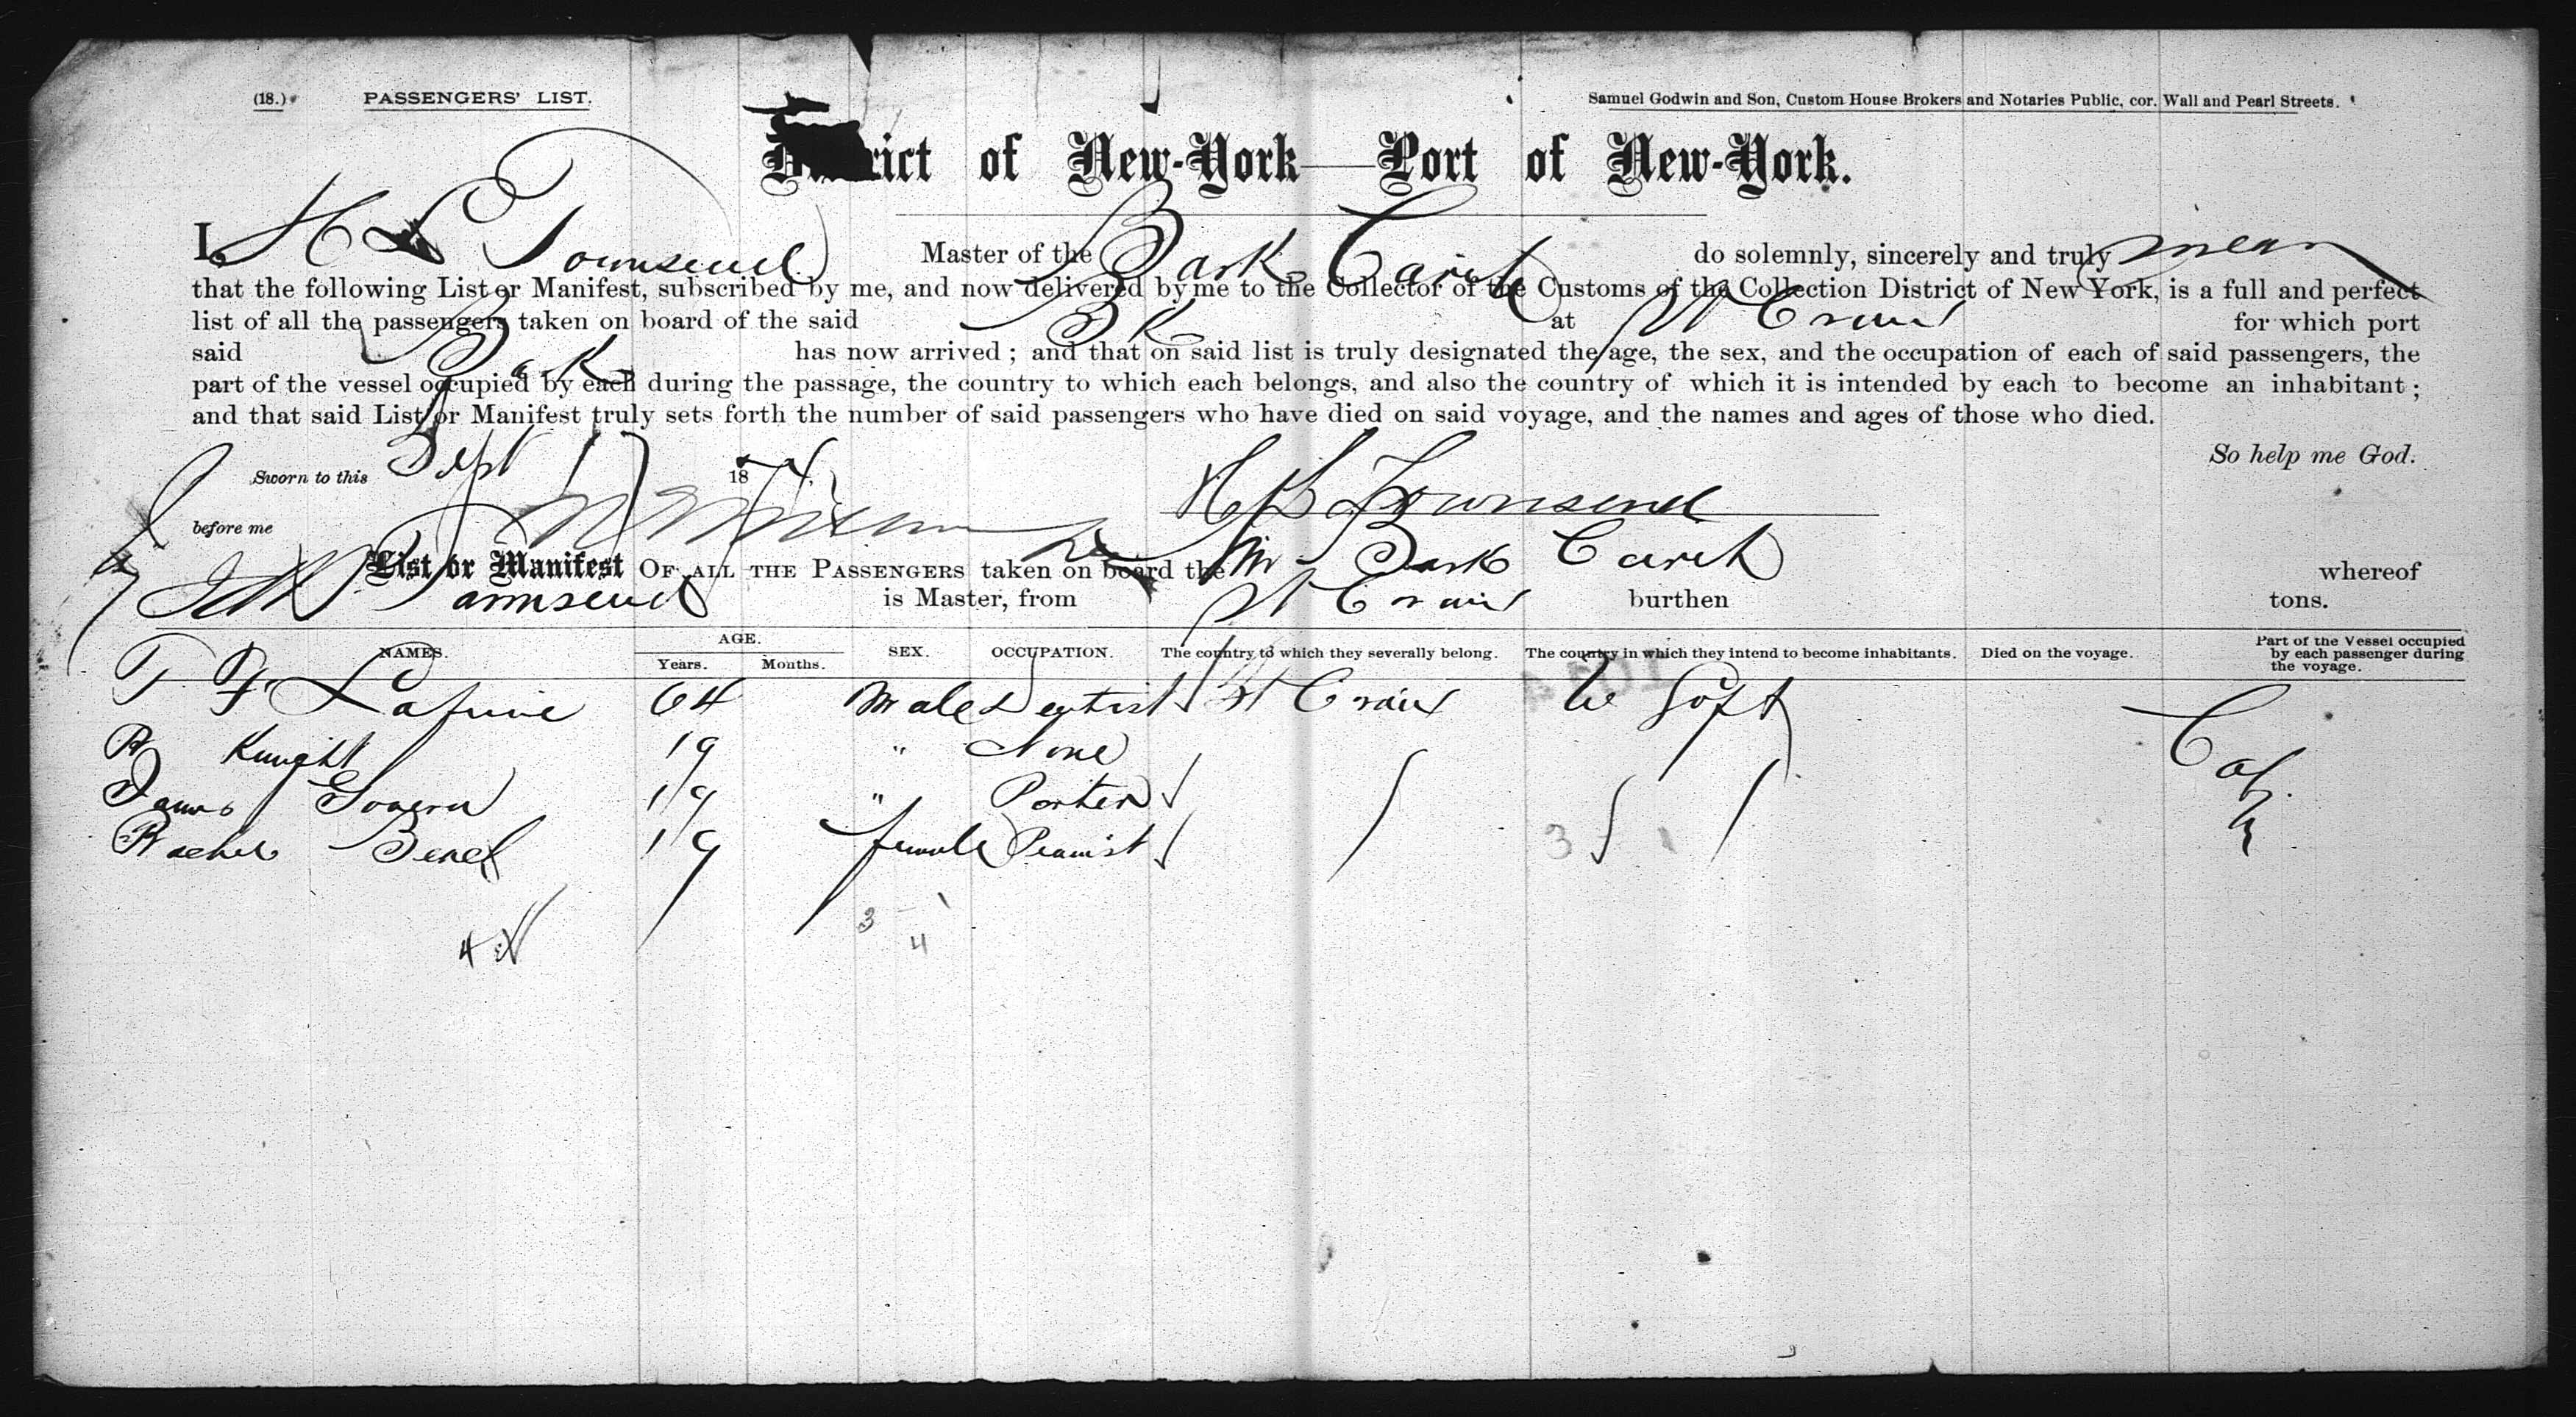 (18.) PASSENGERS' LIST. Samuel Godwin and Son, Custom House Brokers and Notaries Public, cor. Wall and Pearl Streets.
District of New-York—Port of New-York.
I, H Townsend Master of the Bark Carib do solemnly, sincerely and truly swear
that the following List or Manifest, subscribed by me, and now delivered by me to the Collector of the Customs of the Collection District of New York, is a full and perfect
list of all the passengers taken on board of the said Bk at St Croix for which port
said Bark has now arrived; and that on said list is truly designated the age, the sex, and the occupation of each of said passengers, the
part of the vessel occupied by each during the passage, the country to which each belongs, and also the country of which it is intended by each to become an inhabitant;
and that said List or Manifest truly sets forth the number of said passengers who have died on said voyage, and the names and ages of those who died.
So help me God.
Sworn to this Sept 17 1874
before me H Townsend
List or Manifest OF ALL THE PASSENGERS taken on board the Bark Carib whereof
Townsend is Master, from St Croix burthen tons.
NAMES. AGE. Years. Months. SEX. OCCUPATION. The country to which they severally belong. The country in which they intend to become inhabitants. Died on the voyage. Part of the Vessel occupied by each passenger during the voyage.
64 Male Dentist St Croix
Knight 19 " None
James 19 " Porter
Rachel 19 female Pianist
4
3 1
3 1
4